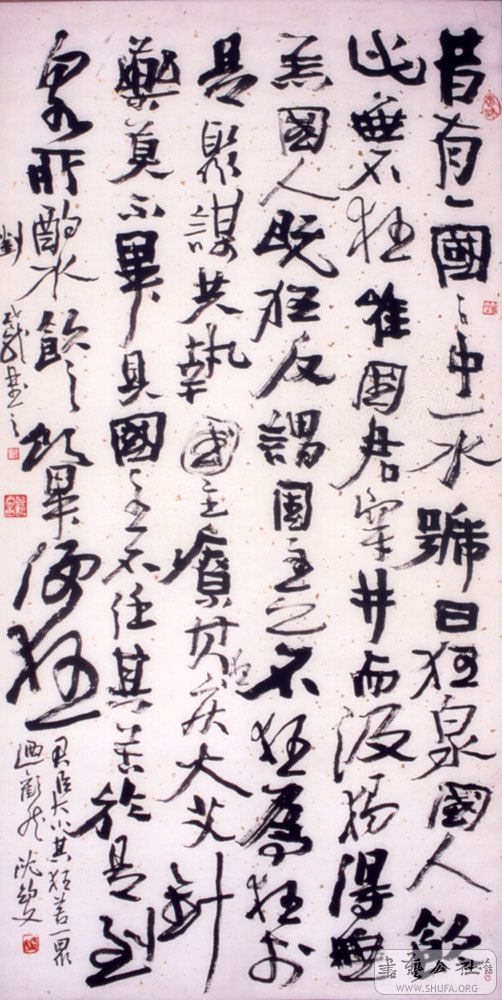 昔有一國〻中一水號曰狂泉國人飲
此無不狂唯國君穿井而汲獨得無
恙國人既狂反謂國主之不狂為狂於
是聚謀共執國主療其狂疾火艾針
藥莫不畢具國主不任其苦於是到
泉所酌水飲之飲畢便狂
君臣大小其狂若一眾
迺歡然
劉
書藝公社
WWW.SHUFA.ORG